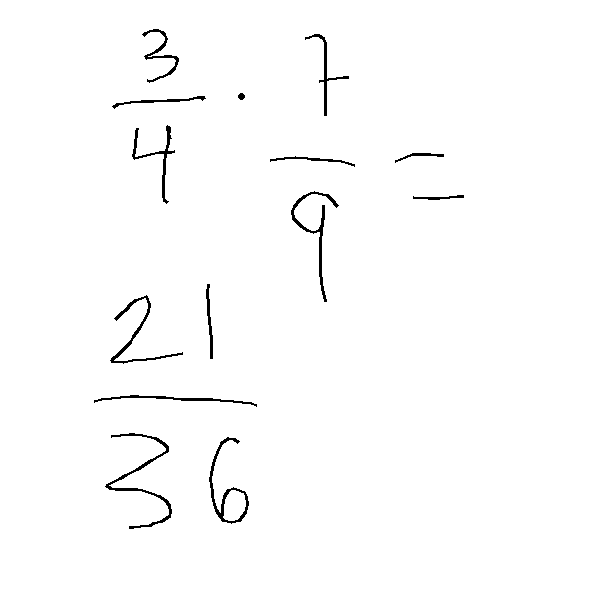 3/4 · 7/9 =
21/36